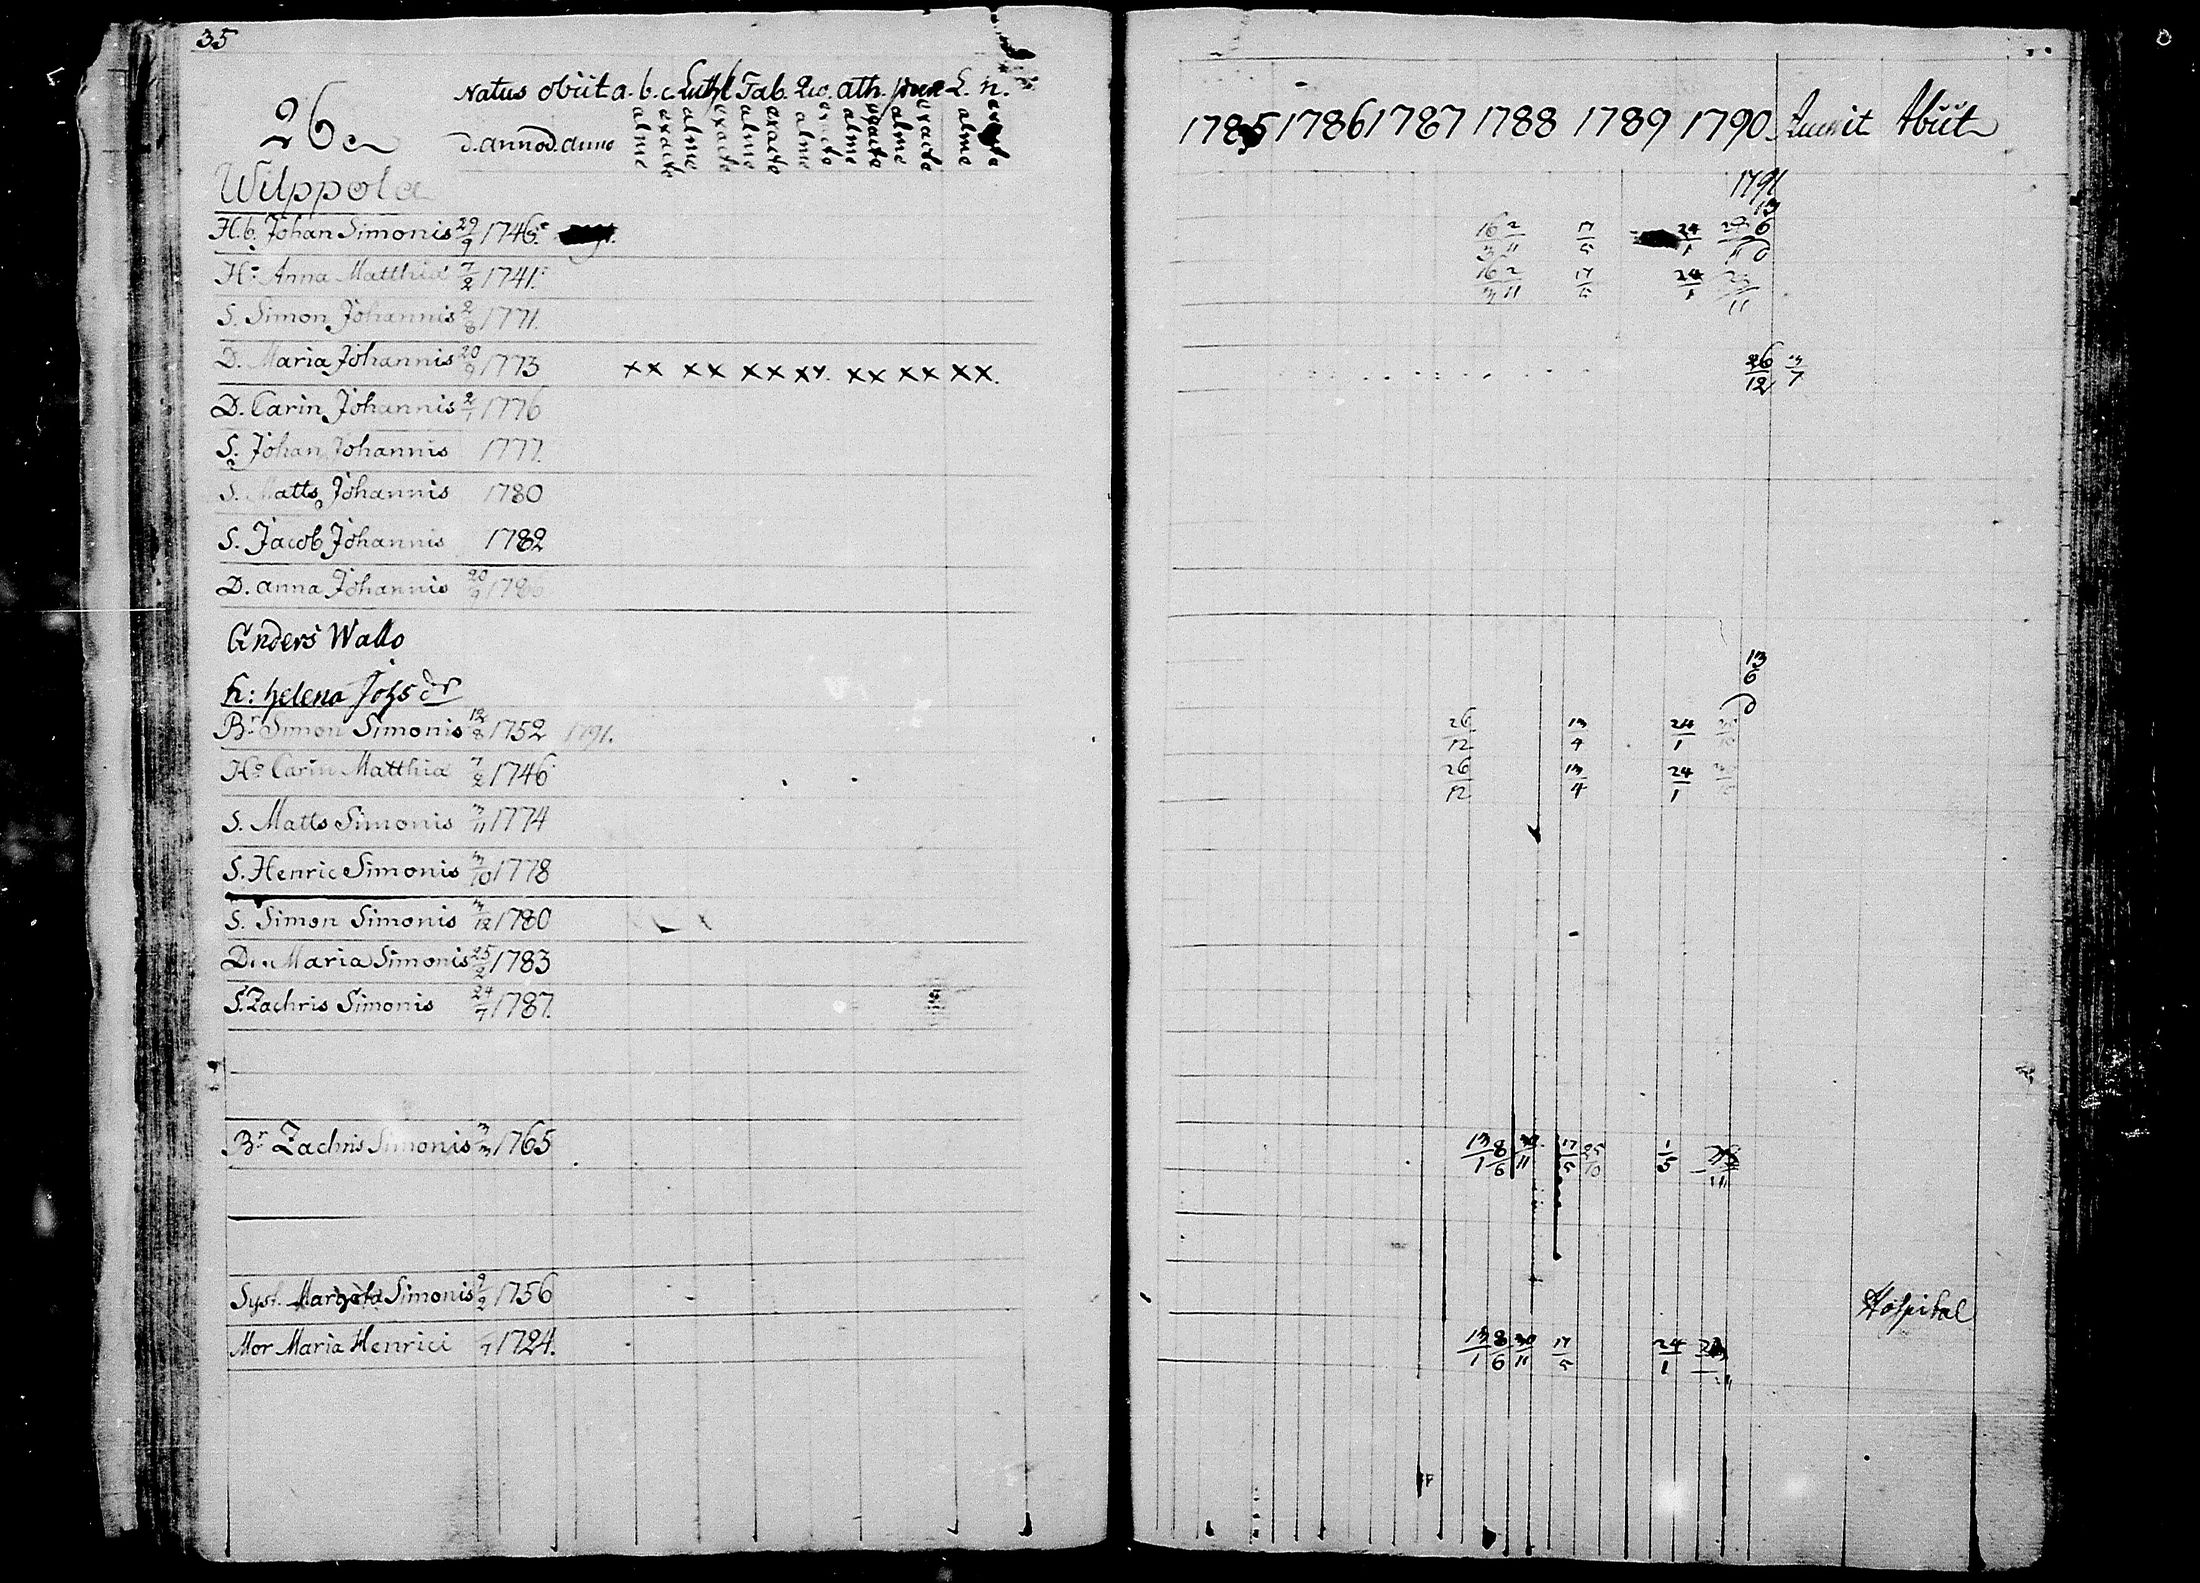 35
26
Natus obiit a. b. c. Luth. Tab. Quo. ath. L. n.
d. anno d. anno alme exacte alme exacte alme exacte alme exacte alme exacte alme exacte alme
Wilppola
H.b. Johan Simonis 29/9 1746.
H: Anna Matthiæ 7/2 1741.
S. Simon Johannis 2/8 1771.
D. Maria Johannis 20/9 1773 xx xx xx xx. xx xx xx.
D. Carin Johannis 2/1 1776
S. Johan Johannis 1777.
S. Matts Johannis 1780
S. Jacob Johannis 1782
D. anna Johannis 20/9
Anders Wallo
h: helena Johsdr
Br Simon Simonis 12/8 1752 1791.
H: Carin Matthiæ 7/2 1746
S. Matts Simonis 3/11 1774
S. Henric Simonis 3/10 1778
S. Simon Simonis 3/12 1780
D. Maria Simonis 25/2 1783
S. Zachris Simonis 24/7 1787.
Br Zachris Simonis 3/3 1765
Syst. Margeta Simonis 9/2 1756
Mor Maria Henrici 1724.
1785 1786 1787 1788 1789 1790 Abiit
1791
13/6
16/3 2/11 17/5 24/1
16/3 2/11 17/5 24/1
26/12 3/7
13/6
26/12 13/4 24/1
26/12 13/4 24/1
13/1 8/6 30/11 17/5 25/10 1/5
Hospital
13/1 8/6 30/11 17/5 24/1